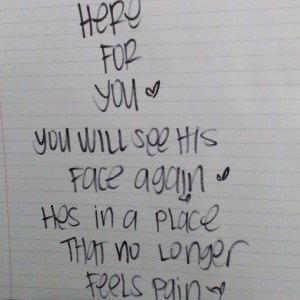 HeRe
FOR
YOU ♥
YOU WILL See HIS
Face again ♥
Hes in a PLace
THAT no Longer
FeeLS pain ♥